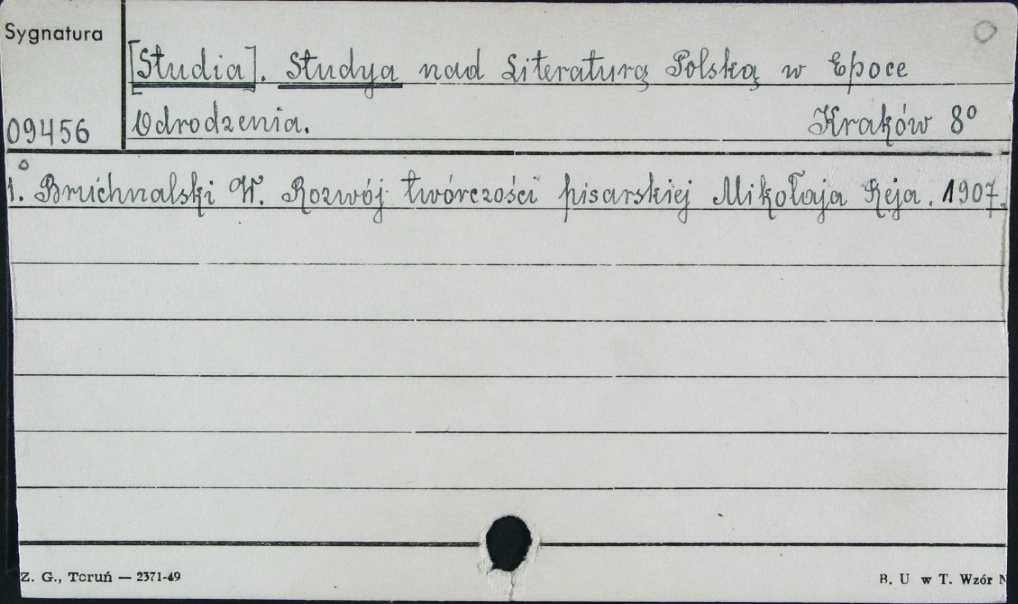 Sygnatura
[Studia]. Studya nad Literaturą Polską w Epoce
09456 Odrodzenia. Kraków 8°
1. Bruchnalski W. Rozwój twórczości pisarskiej Mikołaja Reja. 1907.
Z. G., Toruń — 2371-49 B. U w T. Wzór N